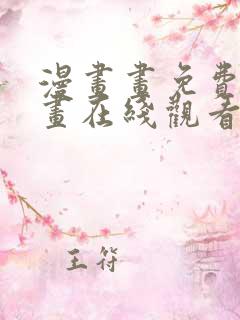 漫畫畫免費
畫在綫觀看
王符